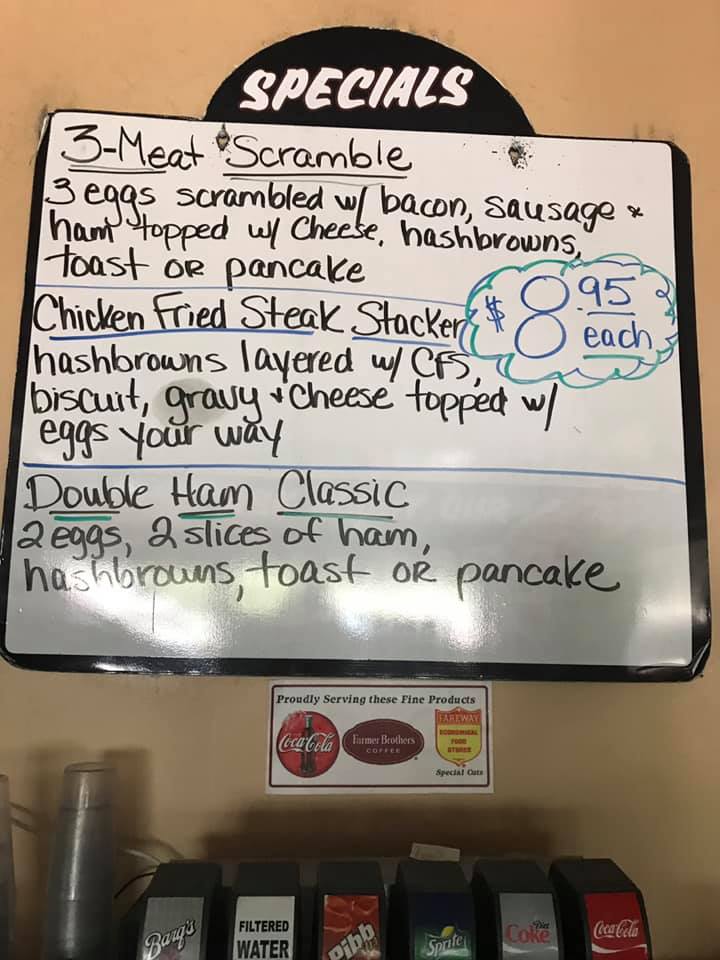 SPECIALS
3-Meat Scramble
3 eggs scrambled w/ bacon, sausage &
ham topped w/ Cheese, hashbrowns,
toast OR pancake
$8.95
each
Chicken Fried Steak Stacker
hashbrowns layered w/ CFS,
biscuit, gravy & Cheese topped w/
eggs your way
Double Ham Classic
2 eggs, 2 slices of ham,
hashbrowns, toast OR pancake
Proudly Serving these Fine Products
Coca-Cola
Farmer Brothers
COFFEE
FAREWAY
ECONOMICAL
FOOD
STORES
Special Cuts
Barq's
FILTERED
WATER
Pibb
Sprite
Diet
Coke
Coca-Cola